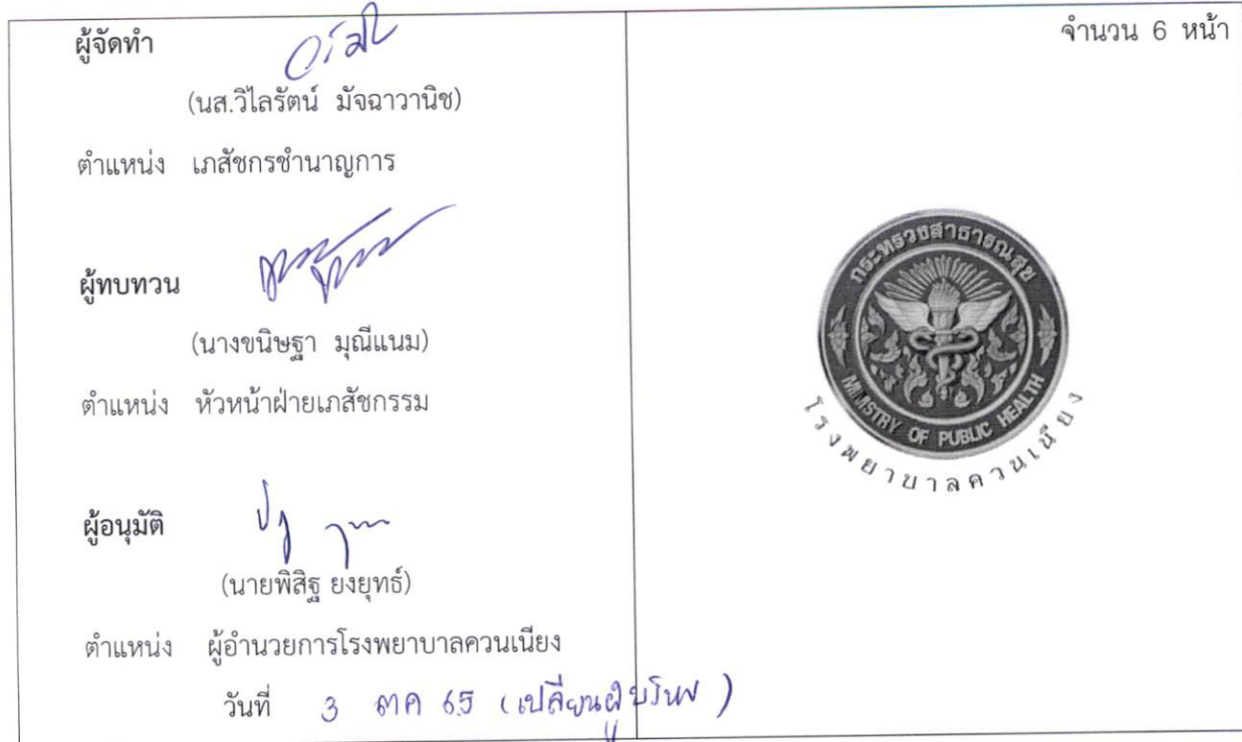 ผู้จัดทำ
(นส.วิไลรัตน์ มัจฉาวานิช)
ตำแหน่ง เภสัชกรชำนาญการ
ผู้ทบทวน
(นางขนิษฐา มุณีแนม)
ตำแหน่ง หัวหน้าฝ่ายเภสัชกรรม
ผู้อนุมัติ
(นายพิสิฐ ยงยุทธ์)
ตำแหน่ง ผู้อำนวยการโรงพยาบาลควนเนียง
วันที่ 3 ตค 65 (เปลี่ยนผู้บริหาร)
จำนวน 6 หน้า
กระทรวงสาธารณสุข
MINISTRY OF PUBLIC HEALTH
โรงพยาบาลควนเนียง